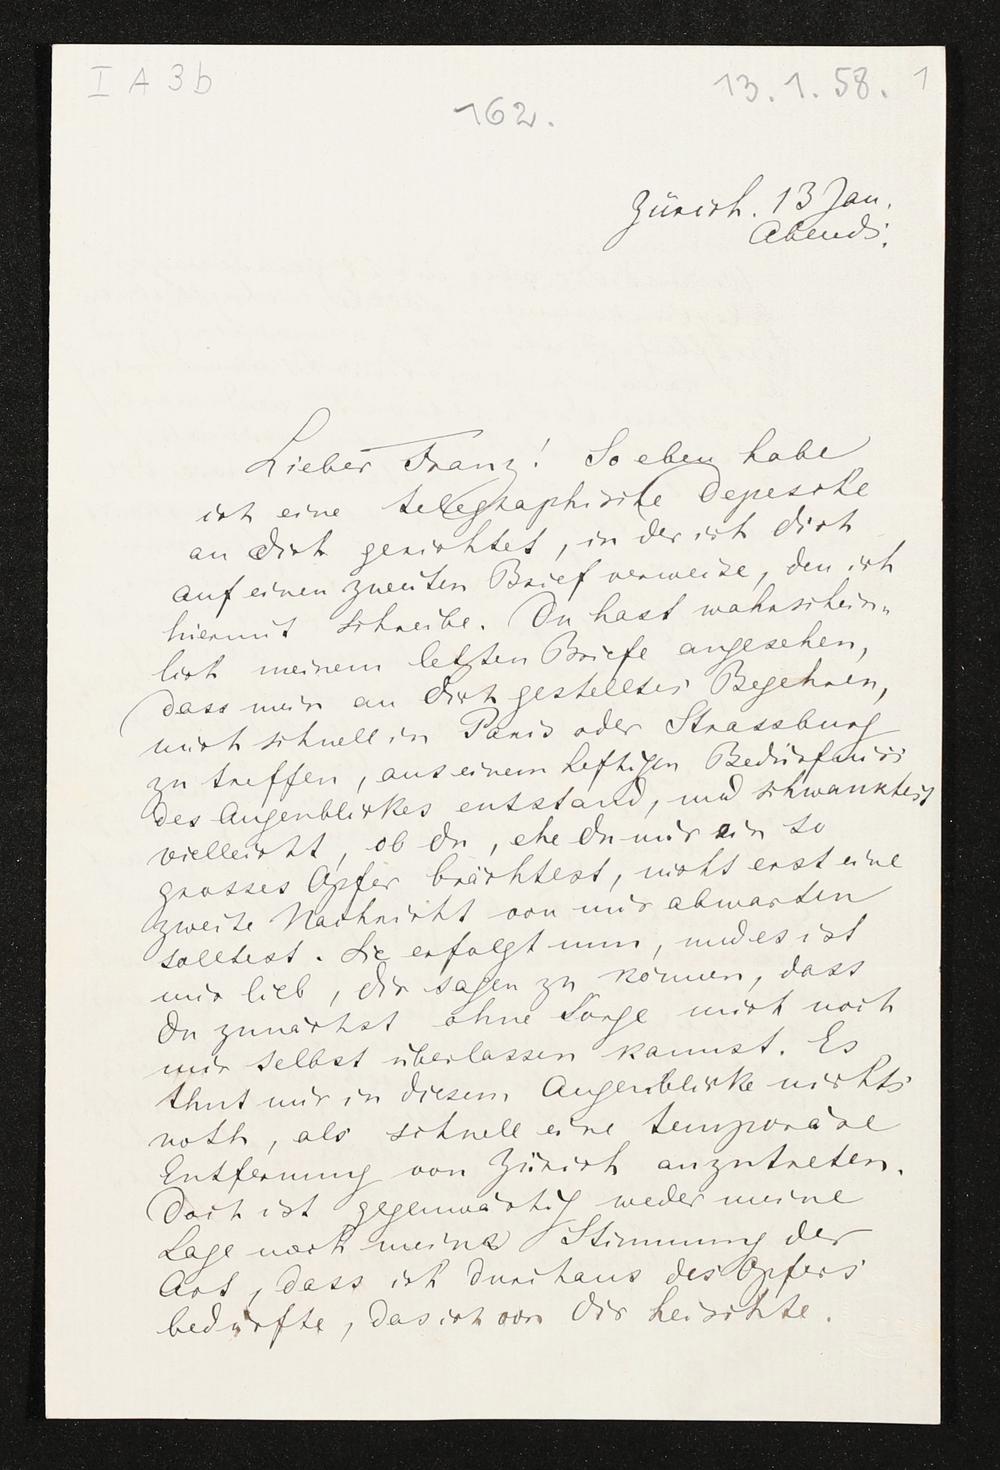 I A 3 b
13. 1. 58. 1
162.
Zürich. 13 Jan.
Abends.
Lieber Franz! So eben habe
ich eine telegraphische Depesche
an Dich gerichtet, in der ich Dich
auf einen zweiten Brief verweise, den ich
hiermit schreibe. Du hast wahrschein-
lich meinem letzten Briefe angesehen,
dass mein an Dich gestelltes Begehren,
mich schnell in Paris oder Strassburg
zu treffen, aus einem heftigen Bedürfniss
des Augenblickes entstand, und schwanktest
vielleicht, ob Du, ehe Du mir ein so
grosses Opfer brächtest, nicht erst eine
zweite Nachricht von mir abwarten
solltest. Sie erfolgt nun, und es ist
mir lieb, Dir sagen zu können, dass
Du zunächst ohne Sorge mich noch
mir selbst überlassen kannst. Es
thut mir in diesem Augenblicke nichts
noth, als schnell eine temporäre
Entfernung von Zürich anzutreten.
Doch ist gegenwärtig weder meine
Lage noch meine Stimmung der
Art, dass ich durchaus des Opfers
bedürfte, das ich von Dir heischte.